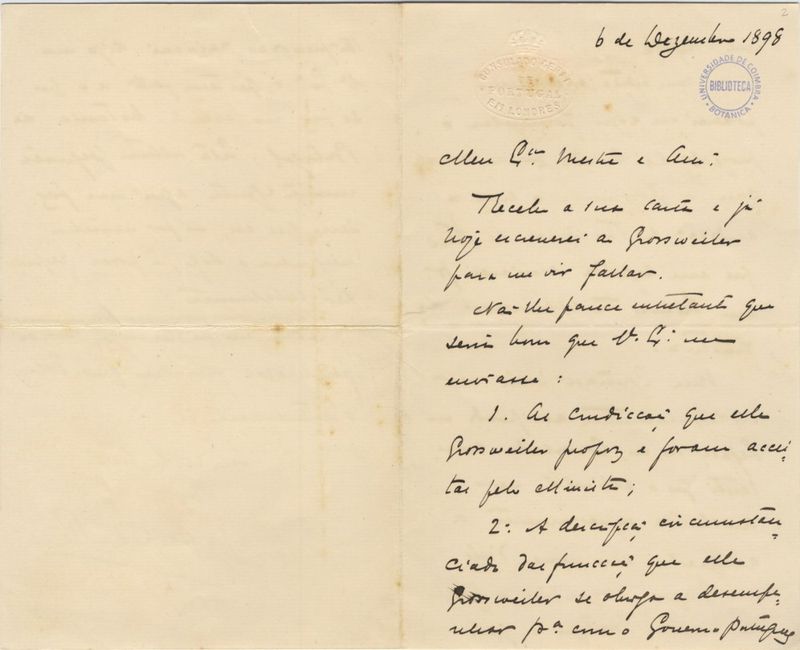 2
6 de Dezembro 1898
CONSULADO GERAL
DE
PORTUGAL
EM LONDRES
UNIVERSIDADE DE COIMBRA
BIBLIOTECA
BOTANICA
Meu Ex.mo Mestre e Am.º
Recebi a sua carta e já
hoje escreverei a Grossweiler
para me vir fallar.
Não lhe parece entretanto que
seria bom que V. Ex.ª me
enviasse:
1. As condicções que elle
Grossweiler propoz e foram accei-
tas pelo Ministro;
2.º A descripção circumstan-
ciada das funcções que elle
Grossweiler se obriga a desempe-
nhar p.ª com o Governo Portuguez